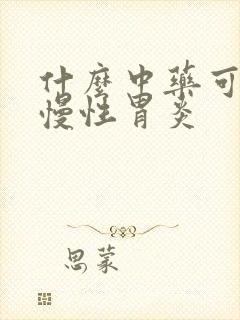 什麼中藥可
慢性胃炎
思蒙